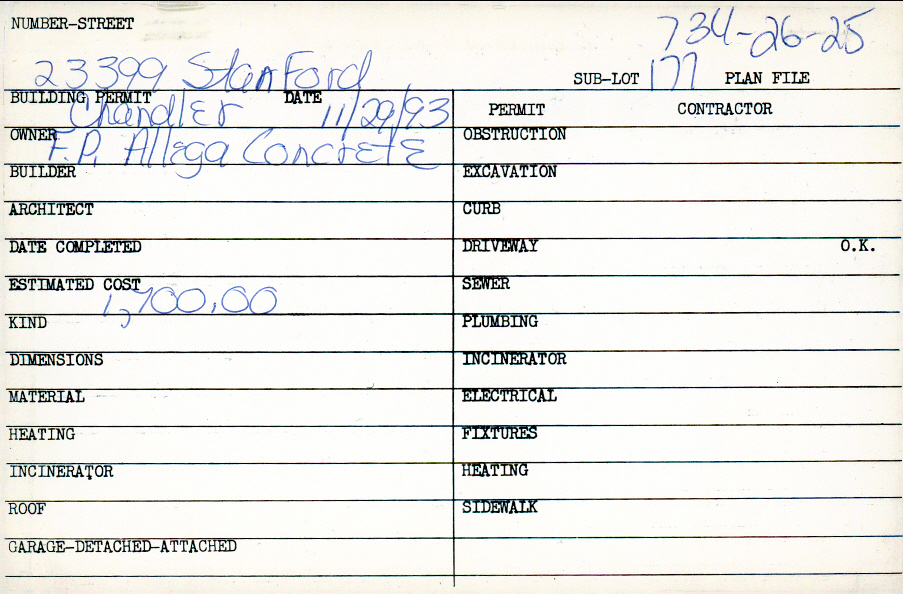 NUMBER-STREET
734-26-25
23399 Stanford
SUB-LOT 177 PLAN FILE
BUILDING PERMIT DATE
Chandler 11/29/93
PERMIT CONTRACTOR
OWNER
F.P. Allega Concrete
OBSTRUCTION
BUILDER
EXCAVATION
ARCHITECT
CURB
DATE COMPLETED
DRIVEWAY O.K.
ESTIMATED COST
1,700.00
SEWER
KIND
PLUMBING
DIMENSIONS
INCINERATOR
MATERIAL
ELECTRICAL
HEATING
FIXTURES
INCINERATOR
HEATING
ROOF
SIDEWALK
GARAGE-DETACHED-ATTACHED